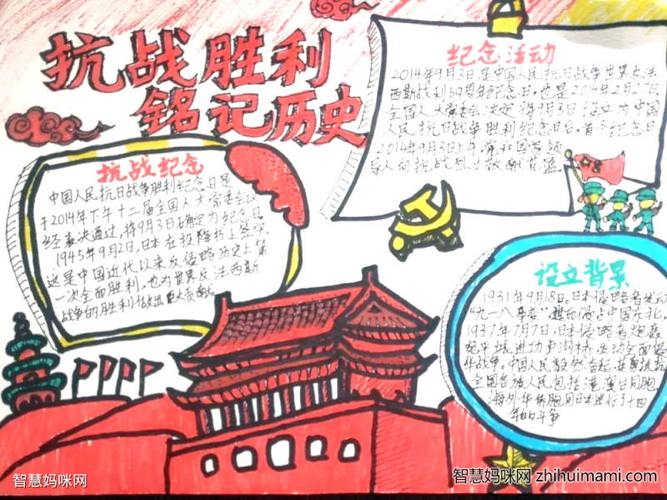 抗战胜利
铭记历史
纪念活动
2014年9月3日是中国人民抗日战争暨世界反法
西斯战利69周年纪念日,也是2014年2月27日
全国人大常委会决定将9月3日设立为中国
人民抗日战争胜利纪念日后,首个纪念日
2014年9月3日上午,党和国家领
导人向抗战烈士敬献花篮
抗战纪念
中国人民抗日战争胜利纪念日是
于2014年下午十二届全国人大常委会
经表决通过,将9月3日确定为纪念日
1945年9月2日,日本在投降书上签字
这是中国近代以来反侵略历史上第
一次全面胜利,也为世界反法西斯
战争的胜利做出巨大贡献
设立背景
1931年9月18日,日本侵略者发动
"九一八事变",占中国东北
1937年7月7日,日本侵略者炮轰
宛平城进攻卢沟桥,发动全面侵
华战争。中国人民毅然奋起
全国各族人民包括港澳台同胞
海外华侨胞同日本进行了十四
年的斗争
智慧妈咪网
智慧妈咪网 zhihuimami.com